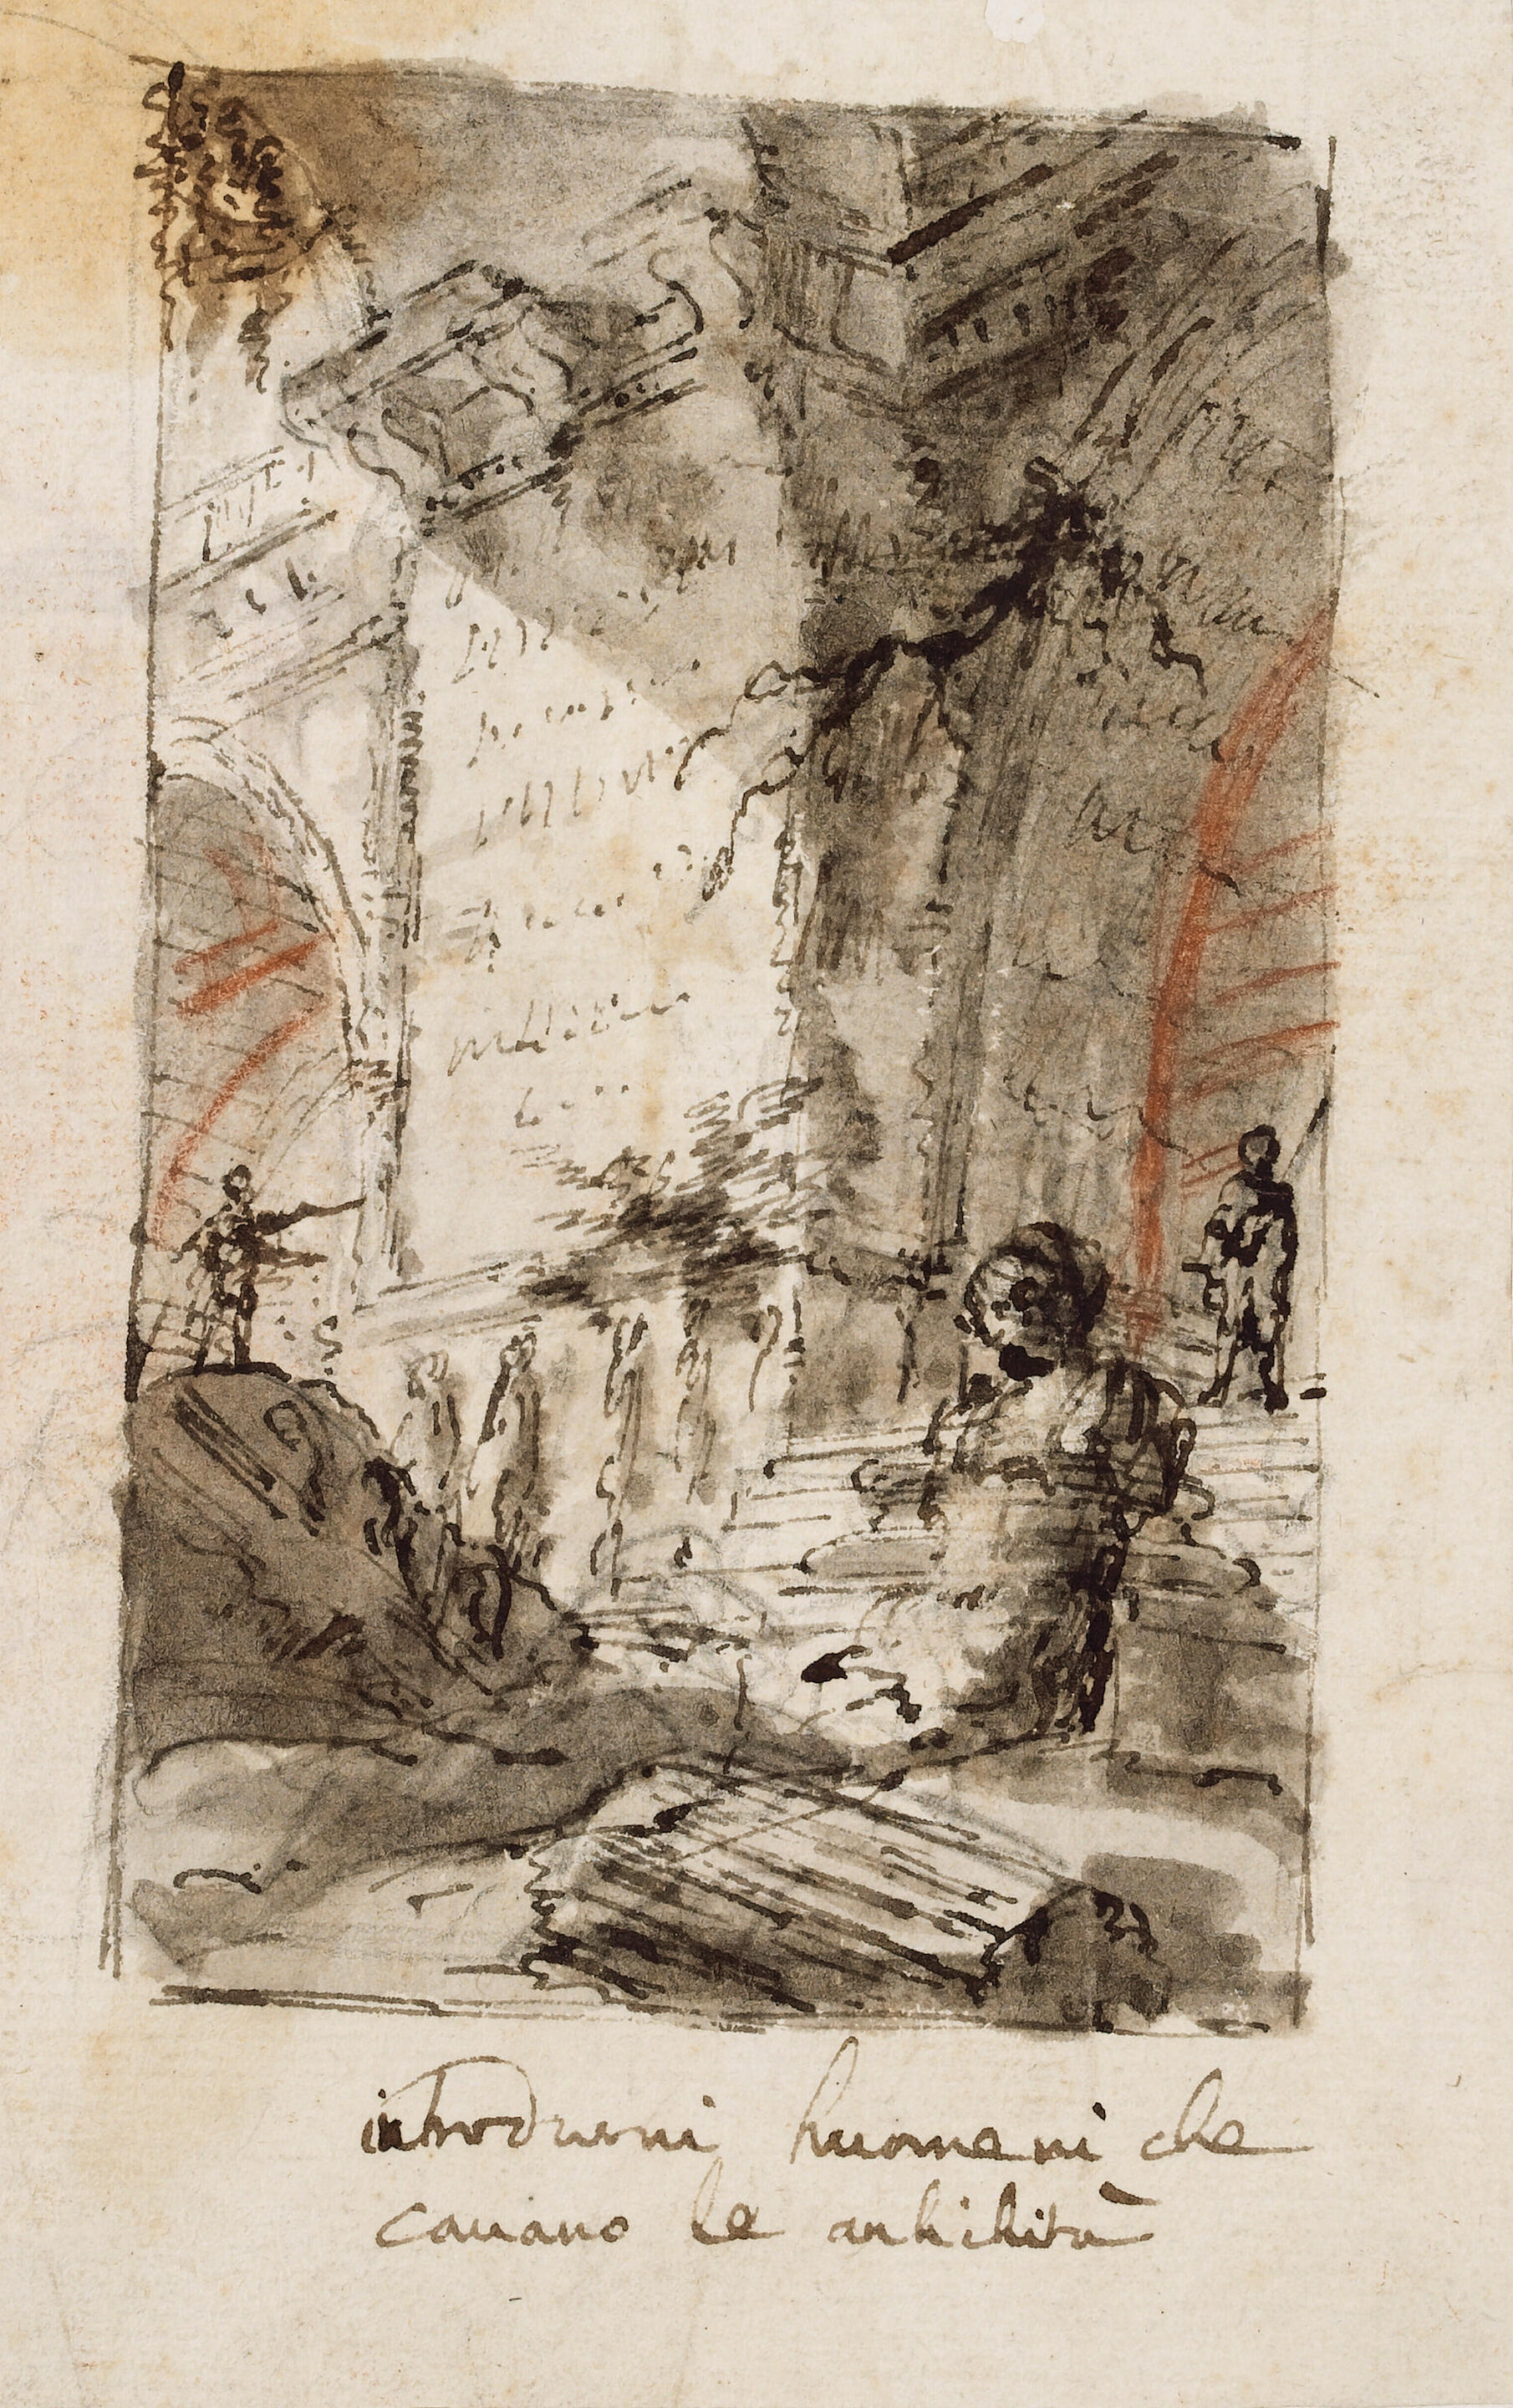 introdurvi huomeni che
cavano le antichità